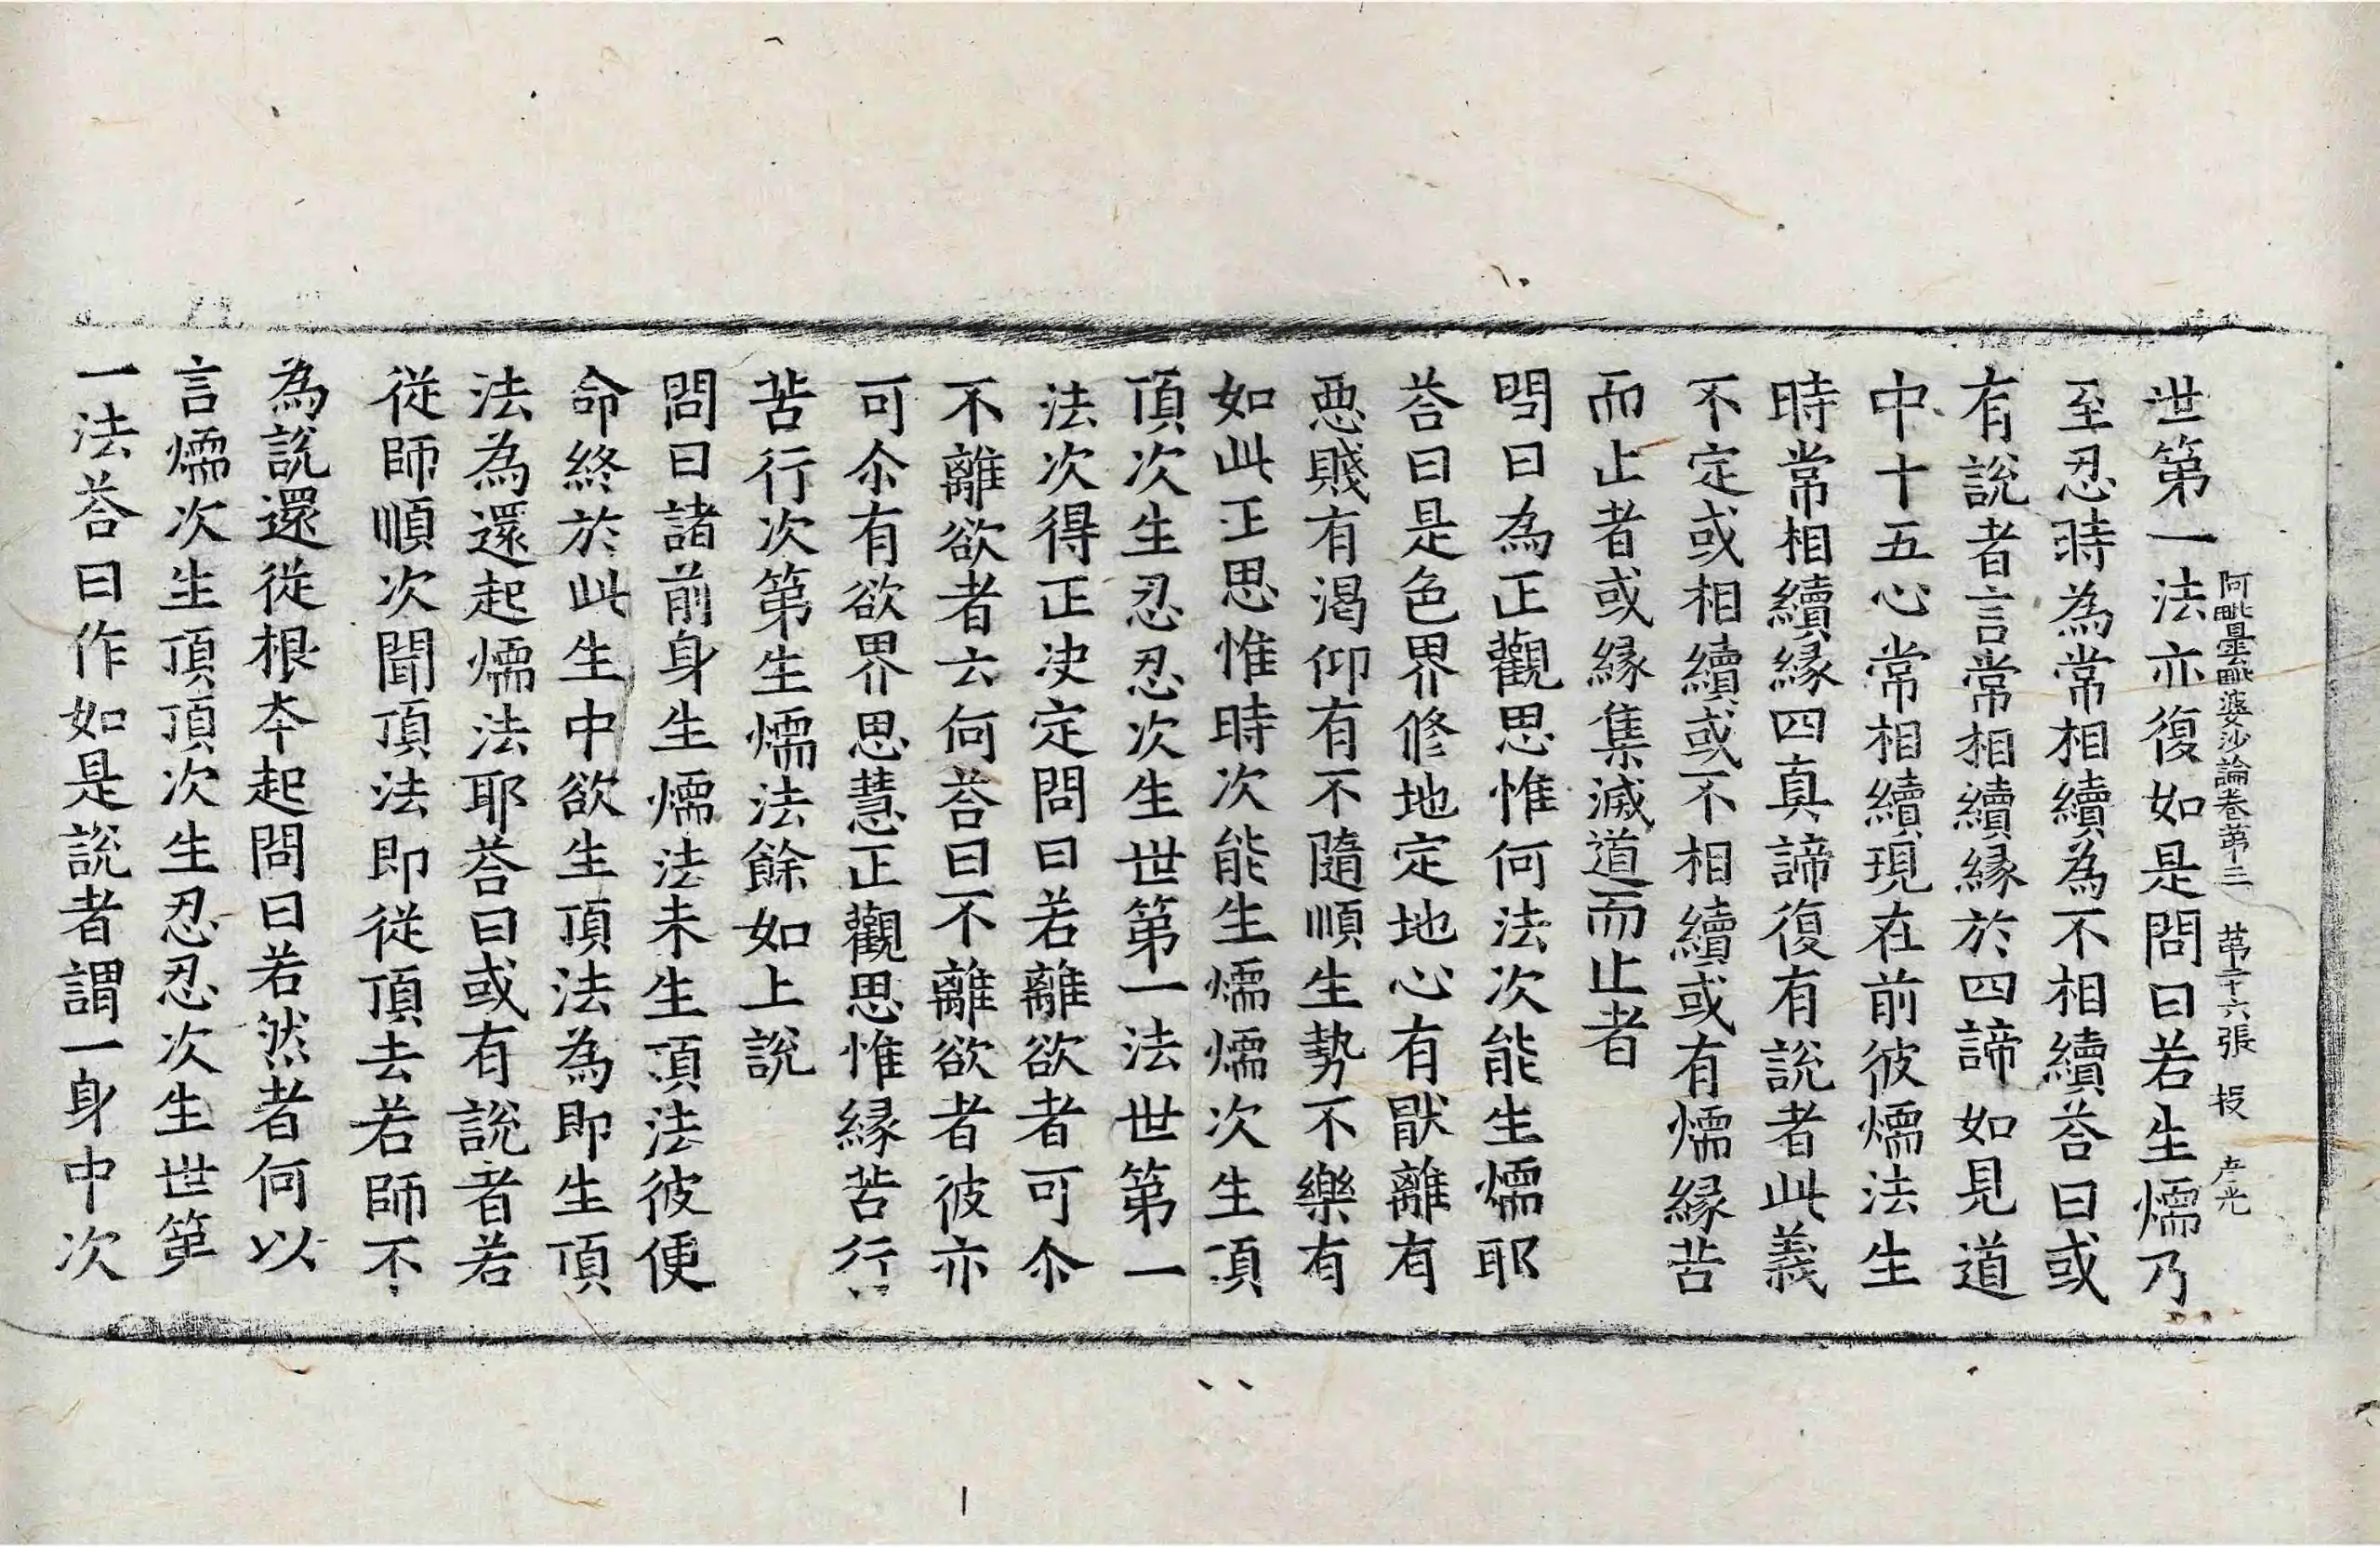 阿毗曇毗婆沙論卷第三　第二十六張　投
世第一法亦復如是問曰若生燸乃
至忍時為常相續為不相續荅曰或
有說者言常相續緣於四諦如見道
中十五心常相續現在前彼燸法生
時常相續緣四真諦復有說者此義
不定或相續或不相續或有燸緣苦
而止者或緣集滅道而止者
問曰為正觀思惟何法次能生燸耶
荅曰是色界修地定地心有猒離有
惡賤有渴仰有不隨順生勢不樂有
如此正思惟時次能生燸燸次生頂
頂次生忍忍次生世第一法世第一
法次得正决定問曰若離欲者可尒
不離欲者云何荅曰不離欲者彼亦
可尒有欲界思慧正觀思惟緣苦行
苦行次第生燸法餘如上說
問曰諸前身生燸法未生頂法彼便
命終於此生中欲生頂法為即生頂
法為還起燸法耶荅曰或有說者若
從師順次聞頂法即從頂去若師不
為說還從根本起問曰若然者何以
言燸次生頂頂次生忍忍次生世第
一法荅曰作如是說者謂一身中次